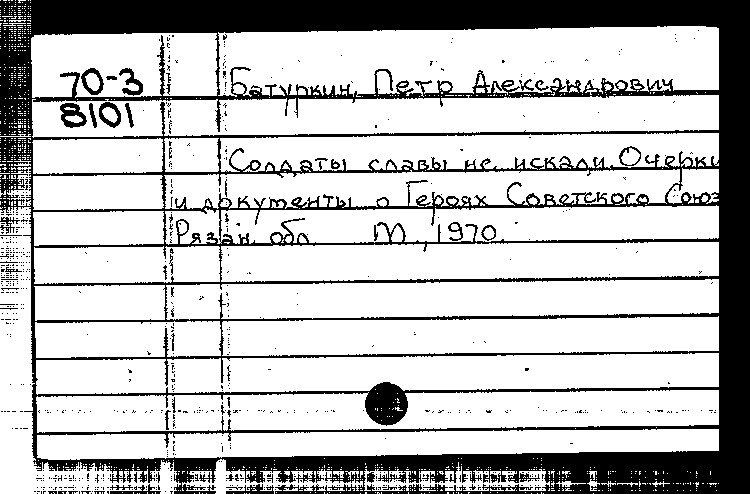 70-3
8101
Батуркин, Петр Александрович
Солдаты славы не искали. Очерки
и документы о Героях Советского Союз
Рязан. обл. М., 1970.